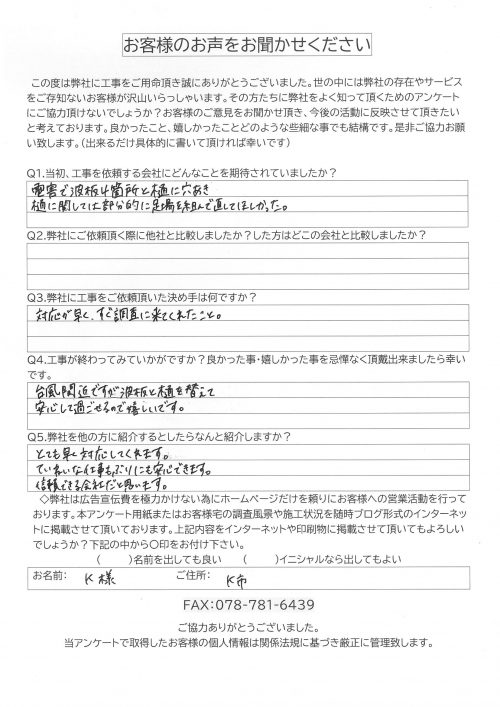 お客様のお声をお聞かせください
この度は弊社に工事をご用命頂き誠にありがとうございました。世の中には弊社の存在やサービス
をご存知ないお客様が沢山いらっしゃいます。その方たちに弊社をよく知って頂くためのアンケート
にご協力頂けないでしょうか?お客様のご意見をお聞かせ頂き、今後の活動に反映させて頂きたい
と考えております。良かったこと、嬉しかったことどのような些細な事でも結構です。是非ご協力お願
い致します。(出来るだけ具体的に書いて頂ければ幸いです)
Q1.当初、工事を依頼する会社にどんなことを期待されていましたか?
雹害で波板4箇所と樋に穴あき
樋に関しては部分的に足場を組んで直してほしかった。
Q2.弊社にご依頼頂く際に他社と比較しましたか?した方はどこの会社と比較しましたか?
Q3.弊社に工事をご依頼頂いた決め手は何ですか?
対応が早く、すぐ調査に来てくれたこと。
Q4.工事が終わってみていかがですか?良かった事・嬉しかった事を忌憚なく頂戴出来ましたら幸い
です。
台風間近ですが波板と樋を替えて
安心して過ごせるので嬉しいです。
Q5.弊社を他の方に紹介するとしたらなんと紹介しますか?
とても早く対応してくれます。
ていねいな仕事ぶりにも安心できます。
信頼できる会社だと思います。
◇弊社は広告宣伝費を極力かけない為にホームページだけを頼りにお客様への営業活動を行って
おります。本アンケート用紙またはお客様宅の調査風景や施工状況を随時ブログ形式のインターネッ
トに掲載させて頂いております。上記内容をインターネットや印刷物に掲載させて頂いてもよろしい
でしょうか?下記の中から〇印をお付け下さい。
( )名前を出しても良い ( )イニシャルなら出してもよい
お名前: K様 ご住所: K市
FAX:078-781-6439
ご協力ありがとうございました。
当アンケートで取得したお客様の個人情報は関係法規に基づき厳正に管理致します。